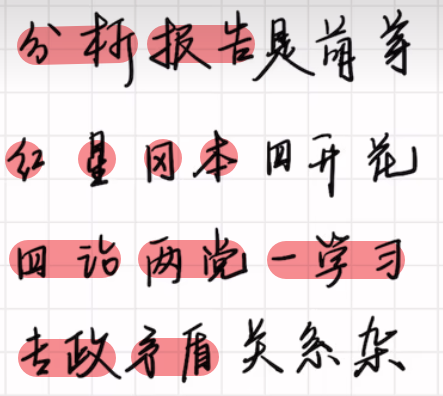 分析报告是萌芽
红星冈本四开花
四论两党一学习
告政矛盾关系杂